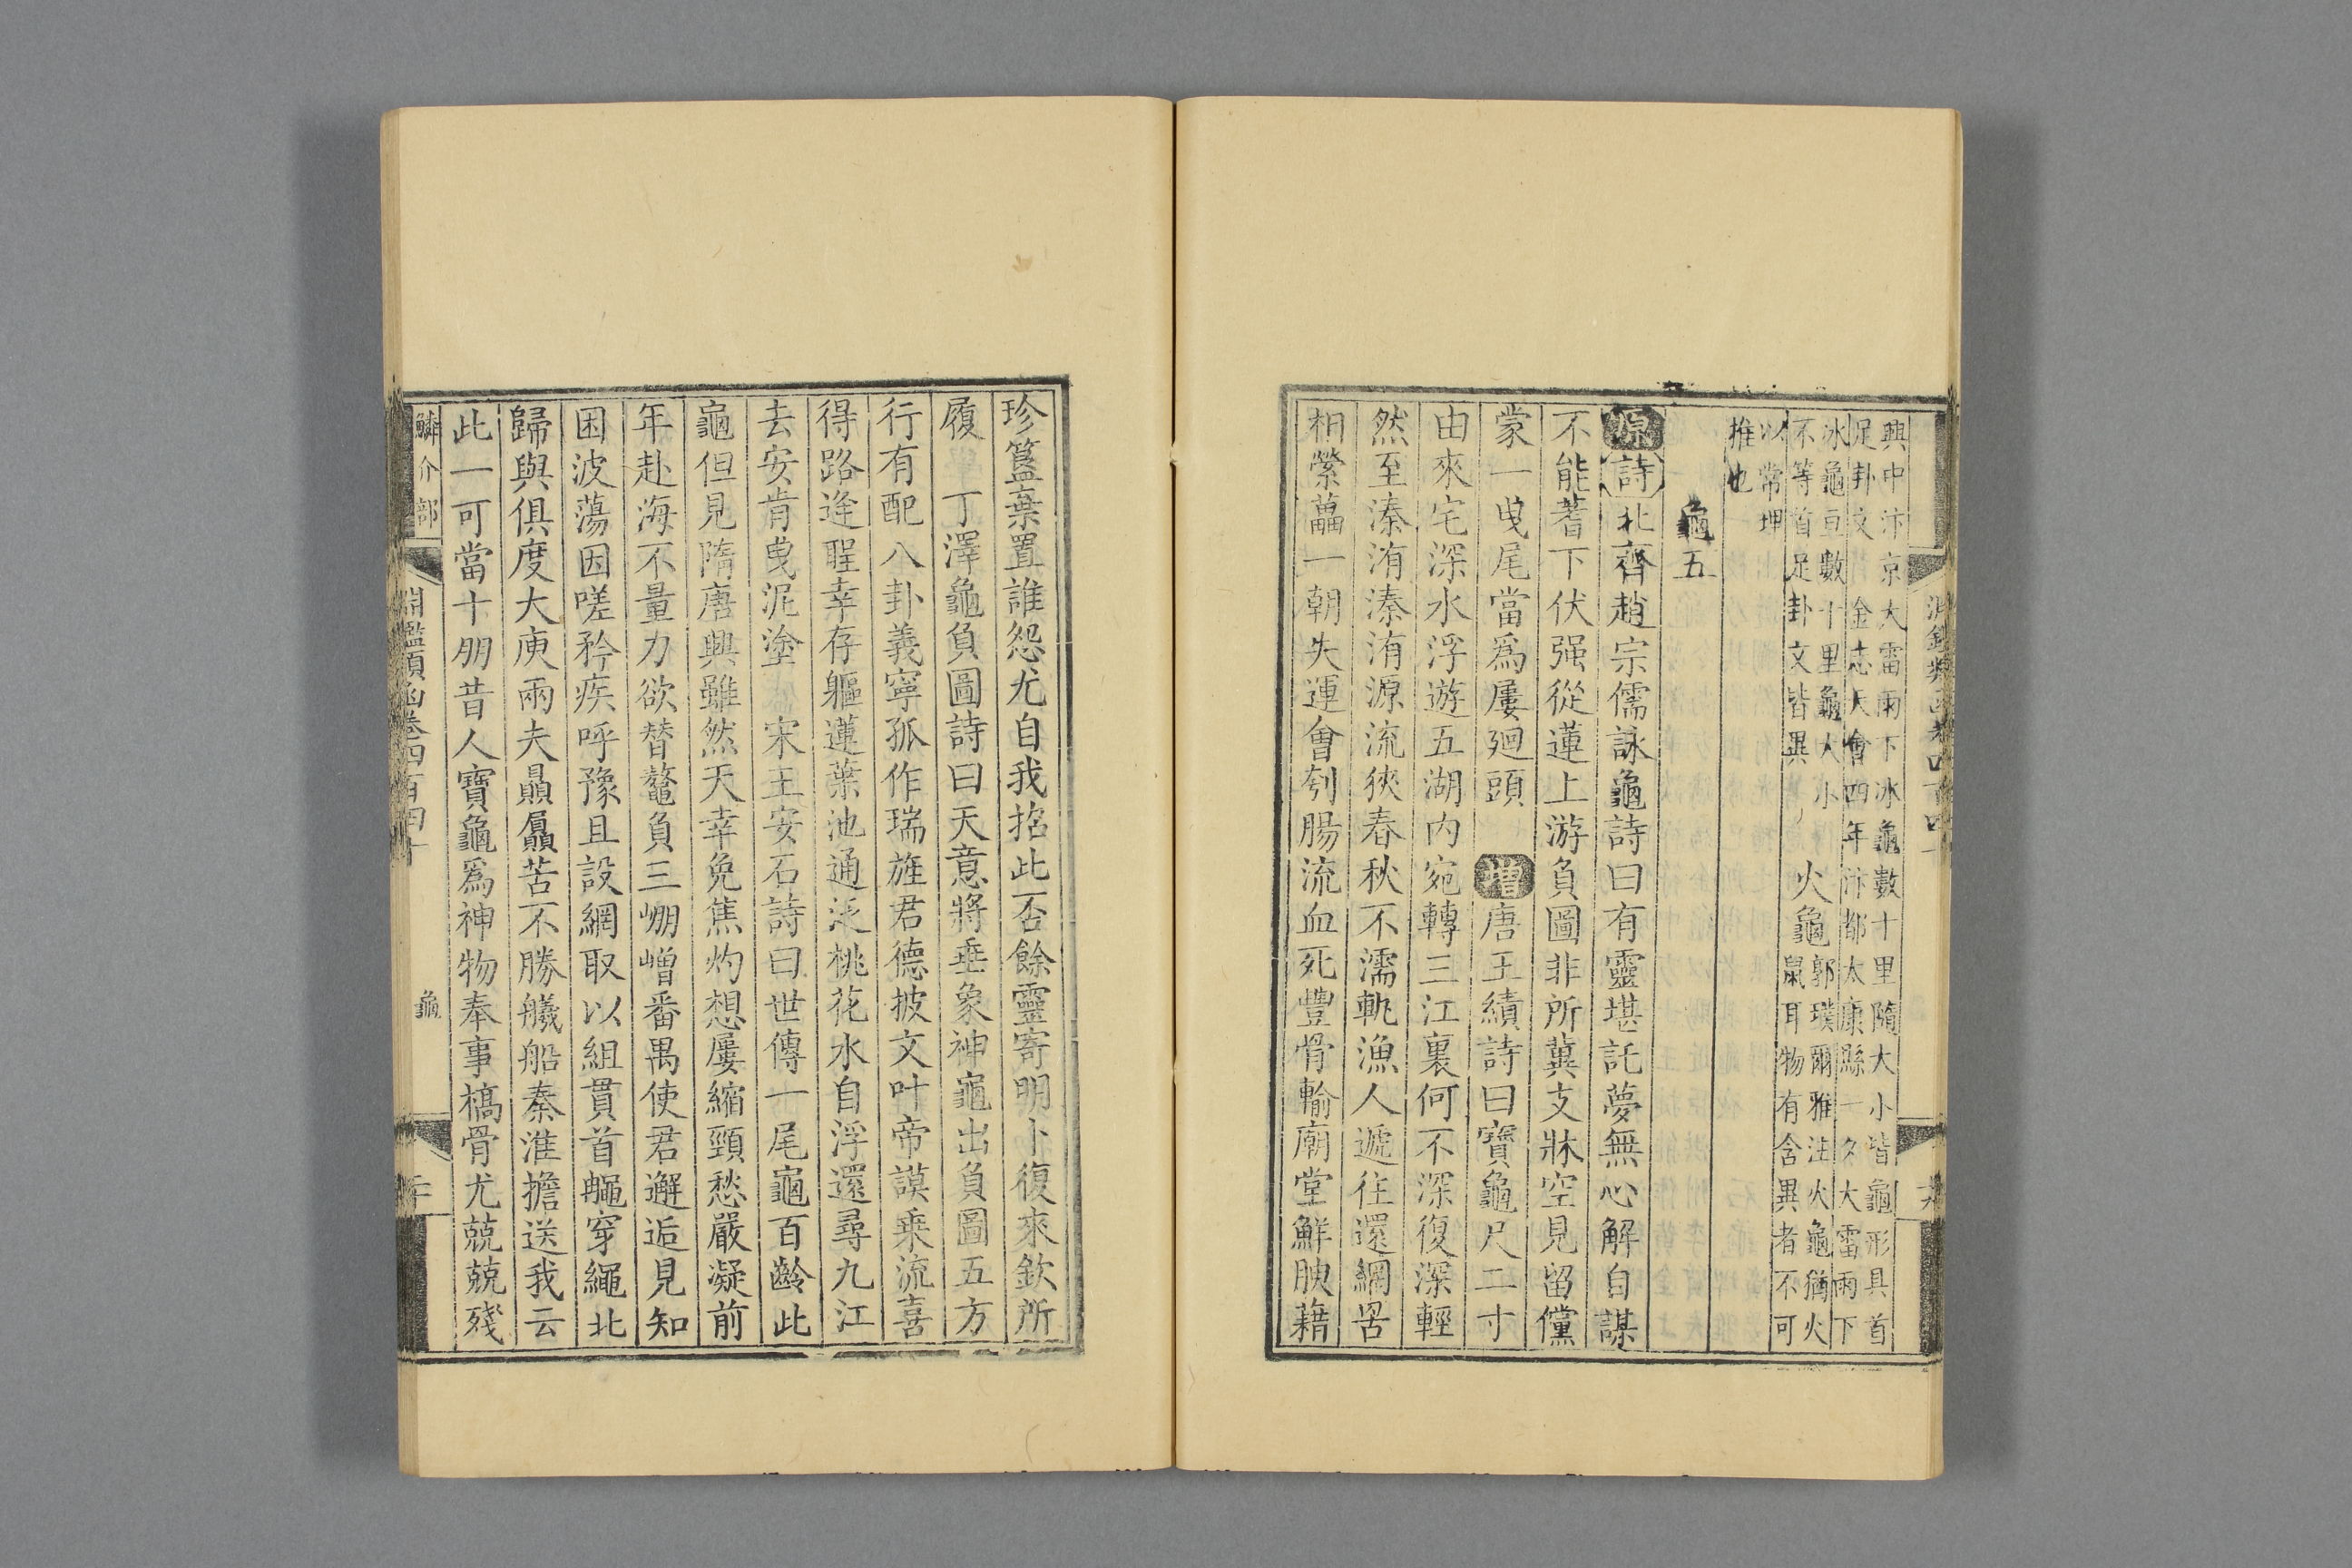 興中汴京大雷雨下冰龜數十里隨大小皆龜形具首
足卦文 金志天會四年汴都太康縣一夕大雷雨下
冰龜亘數十里龜大小
不等首足卦文皆異
火龜郭璞爾雅注火龜猶火
鼠耳物有含異者不可
以常理
推也
龜五
原詩北齊趙宗儒詠龜詩曰有靈堪託夢無心解自謀
不能蓍下伏强從蓮上游負圖非所冀支牀空見留儻
蒙一曳尾當爲屢廻頭 增唐王績詩曰寶龜尺二寸
由來宅深水浮遊五湖内宛轉三江裏何不深復深輕
然至溱洧溱洧源流狹春秋不濡軌漁人遞往還網罟
相縈藟一朝失運會刳腸流血死豐骨輸廟堂鮮腴藉
珍簋棄置誰怨尤自我招此否餘靈寄明卜復來欽所
履 丁澤龜負圖詩曰天意將垂象神龜出負圖五方
行有配八卦義寧孤作瑞旌君德披文叶帝謨乘流喜
得路逢聖幸存軀蓮葉池通泛桃花水自浮還尋九江
去安肯曳泥塗 宋王安石詩曰世傳一尾龜百齡此
龜但見隋唐興雖然天幸免焦灼想屢縮頸愁嚴凝前
年赴海不量力欲替鼇負三崚嶒番禺使君邂逅見知
困波蕩因嗟矜疾呼豫且設網取以組貫首䋲穿繩北
歸與俱度大庾兩夫贔屭苦不勝艤船秦淮擔送我云
此一可當十朋昔人寶龜爲神物奉事槁骨尤兢兢殘
鱗介部
淵鑑類函卷四百四十
龜